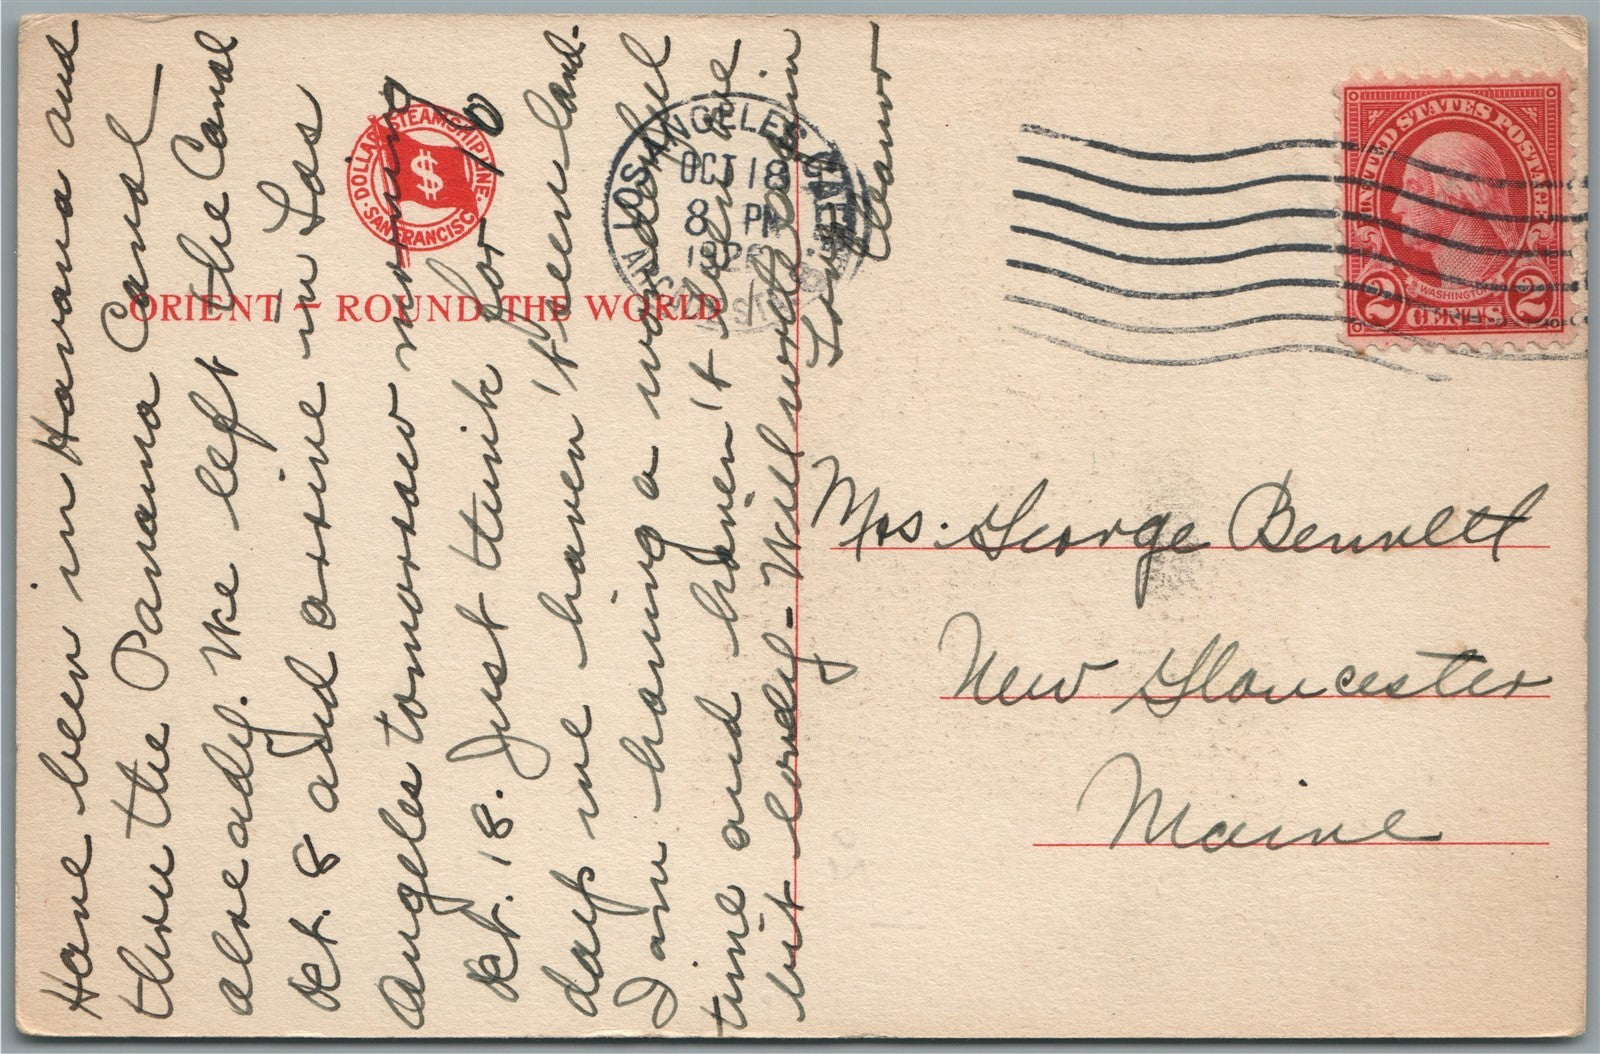 Have been in Havana and
thru the Panama Canal
already. We left the Canal
Oct. 8 and arrive in Los
Angeles tomorrow morning
Oct. 18. Just think for 10
days we haven't seen land.
I am having a wonderful
time and haven't been
bit lonely - Will write again
Love
Eleanor
DOLLAR STEAMSHIP LINE
$
SAN FRANCISCO
ORIENT - ROUND THE WORLD
LOS ANGELES, CALIF.
OCT 18
8 PM
ARCADE STA.
UNITED STATES POSTAGE
WASHINGTON
2 CENTS 2
Mrs. George Bennett
New Gloucester
Maine